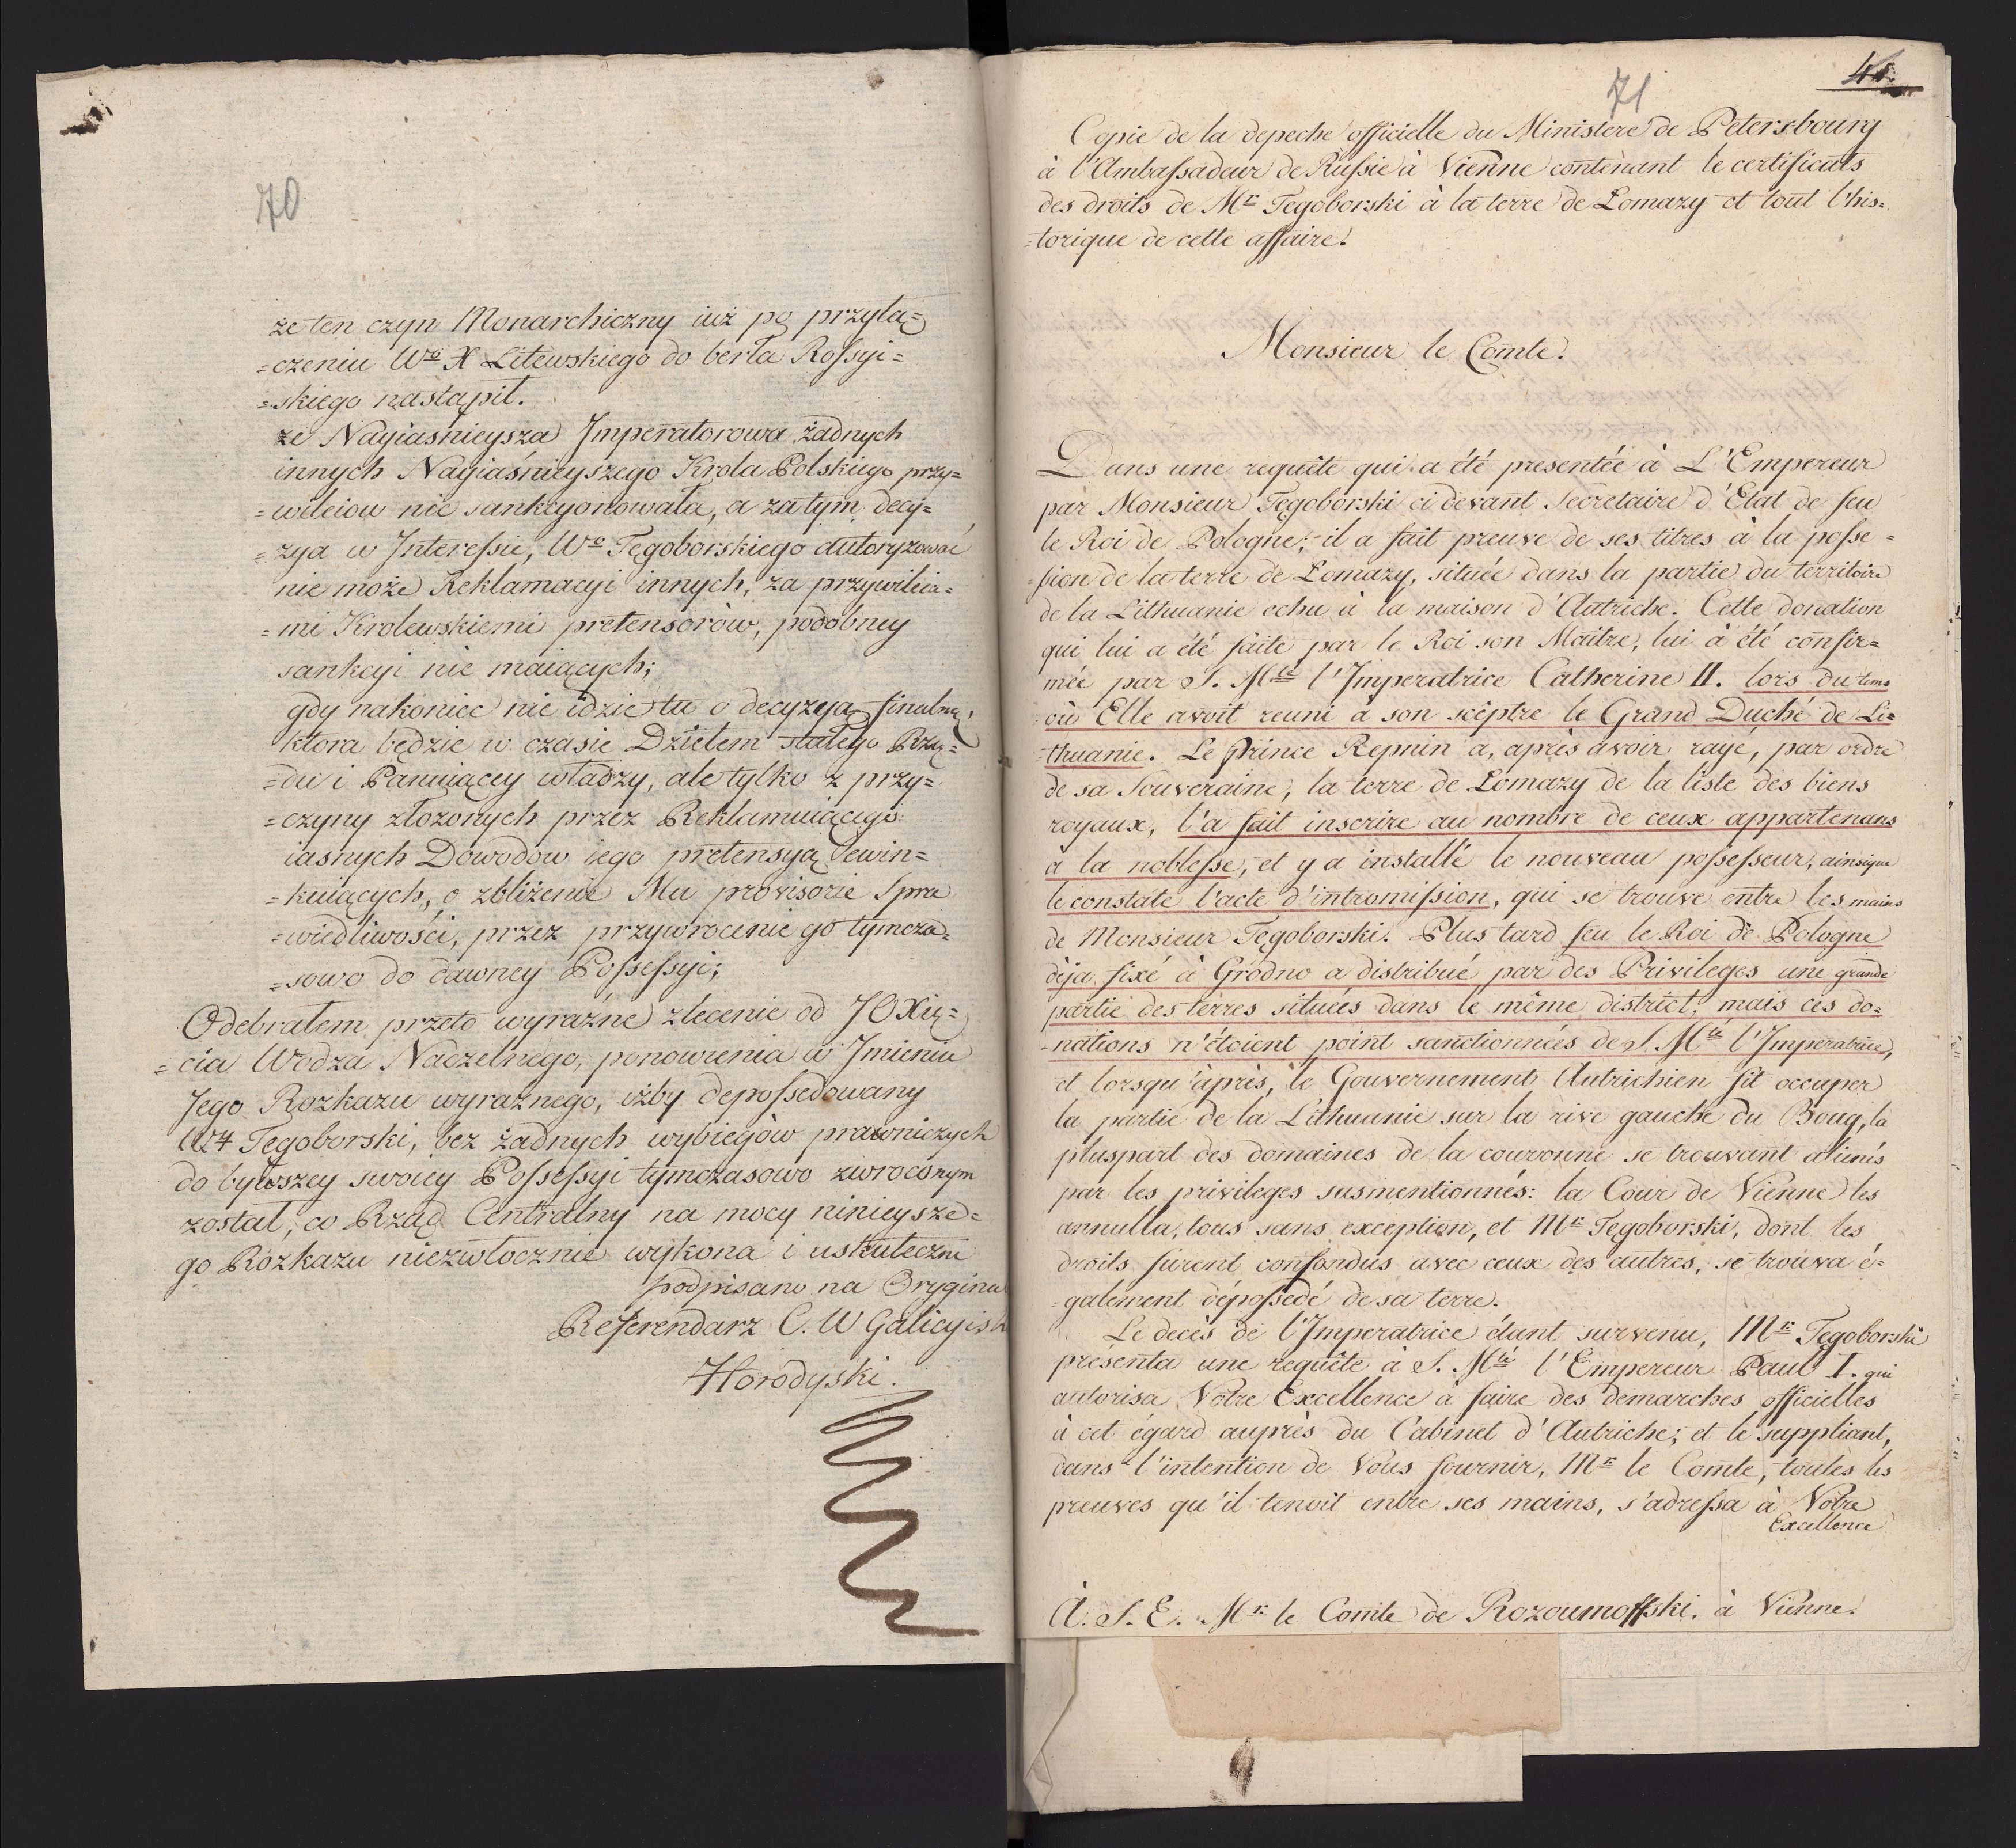 70
że ten czyn Monarchiczny iuż po przyłą=
=czeniu Wo X Litewskiego do berła Roſsyi=
=skiego nastąpił.
że Nayiaśnieysza Jmperatorowa żadnych
innych Nayiaśnieyszego Krola Polskiego przy=
=wileiow nie sankcyonowała, a zatym decy=
=zya w Jntereſsie, Wo Tęgoborskiego autoryzować
nie może Reklamacyi innych, za przywileia=
=mi Krolewskiemi pretensorów, podobney
sankcyi nie maiących;
gdy nakoniec nie idzie tu o decyzyą finalną,
ktora będzie w czasie Dziełem stałego Rzą=
=du i Panuiącey władzy, ale tylko z przy=
=czyny złożonych przez Reklamuiącego
iasnych Dowodow iego pretensyą ewin=
=kuiących, o zbliżenie Mu provisorie Spra
=wiedliwości, przez przywrocenie go tymcza=
=sowo do dawney Poſseſsyi;
Odebrałem przeto wyraźne zlecenie od JO Xię=
=cia Wodza Naczelnego, ponowienia w Jmieniu
Jego Rozkazu wyraźnego, iżby depoſsedowany
W Tęgoborski, bez żadnych wybiegòw prawniczych
do bywszey swoiey Poſseſsyi tymczasowo zwroconym
został, co Rząd Centralny na mocy ninieysze=
go Rozkazu niezwłocznie wykona i uskuteczni
podpisano na Orygina
Referendarz C. W Galicyisk
Horodyski.
71
Copie de la depeche officielle du Ministere de Petersbourg
à l'Ambaſsadeur de Ruſsie à Vienne contenant le certificats
des droits de Mr Tęgoborski à la terre de Łomazy et tout l'his=
=torique de cette affaire.
Monsieur le Comte.
Dans une requête qui a été presentée à L'Empereur
par Monsieur Tęgoborski ci devant Secretaire d'Etat de feu
le Roi de Pologne, il a fait preuve de ses titres à la poſse=
=ſsion de la terre de Łomazy, située dans la partie du territoire
de la Lithuanie echu à la maison d'Autriche. Cette donation
qui lui a été faite par le Roi son Maître, lui à été confir=
mée par S. Mté l'Imperatrice Catherine II. lors du tems
où Elle avoit reuni à son scêptre le Grand Duché de Li=
=thuanie. Le Prince Repnin a, après avoir rayé, par ordre
de sa Souveraine, la terre de Łomazy de la liste des biens
royaux, l'a fait inscrire au nombre de ceux appartenans
à la nobleſse, et y a installé le nouveau poſseſseur, ainsique
le constate l'acte d'intromiſsion, qui se trouve entre les mains
de Monsieur Tęgoborski. Plus tard feu le Roi de Pologne
dèja fixé à Grodno a distribué par des Privileges une grande
partie des terres situées dans le même district, mais ces do=
=nations n'étoient point sanctionnées de S. Mté l'Imperatrice,
et lorsqu'après, le Gouvernement Autrichien fit occuper
la partie de la Lithuanie sur la rive gauche du Boug, la
pluspart des domaines de la couronne se trouvant aliénés
par les privileges susmentionnés: la Cour de Vienne les
annulla, tous sans exception, et Mr Tęgoborski, dont les
droits furent confondus avec ceux des autres, se trouva é=
=galement dépoſsedé de sa terre.
Le decès de l'Imperatrice étant survenu, Mr Tęgoborski
présenta une requête à S. Mté l'Empereur Paul I. qui
autorisa Votre Excellence à faire des demarches officielles
à cet égard auprès du Cabinet d'Autriche; et le suppliant,
dans l'intention de Vous fournir, Mr le Comte, toutes les
preuves qu'il tenoit entre ses mains, s'adreſsa à Votre
Excellence
À. S. E. Mr le Comte de Rozoumoffski. à Vienne.